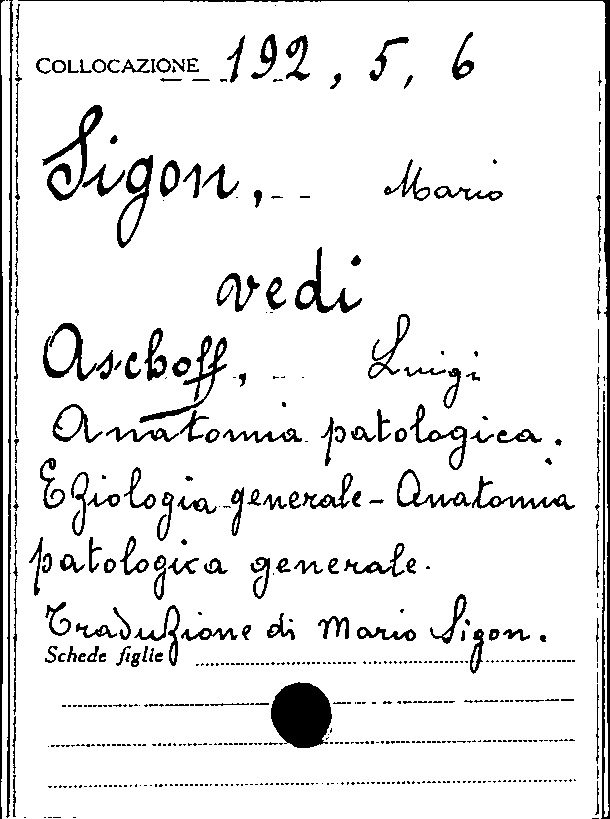 COLLOCAZIONE 192, 5, 6
Sigon, Mario
vedi
Aschoff, Luigi
Anatomia patologica.
Eziologia generale - Anatomia
patologica generale.
Traduzione di Mario Sigon.
Schede figlie